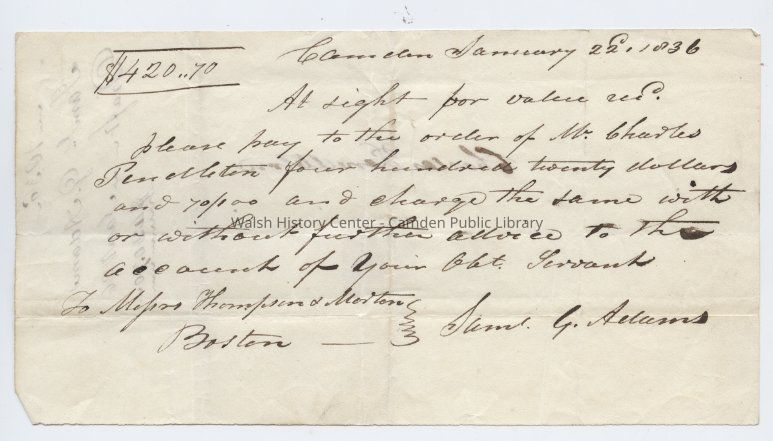 $420..70
Camden January 22d. 1836
At sight for value recd.
please pay to the order of Mr. Charles
Pendleton four hundred twenty dollars
and 70/100 and charge the same with
or without further advice to the
account of your Obt. Servant
Walsh History Center - Camden Public Library
To Messrs Thompson & Morton
Boston —
Saml. G. Adams